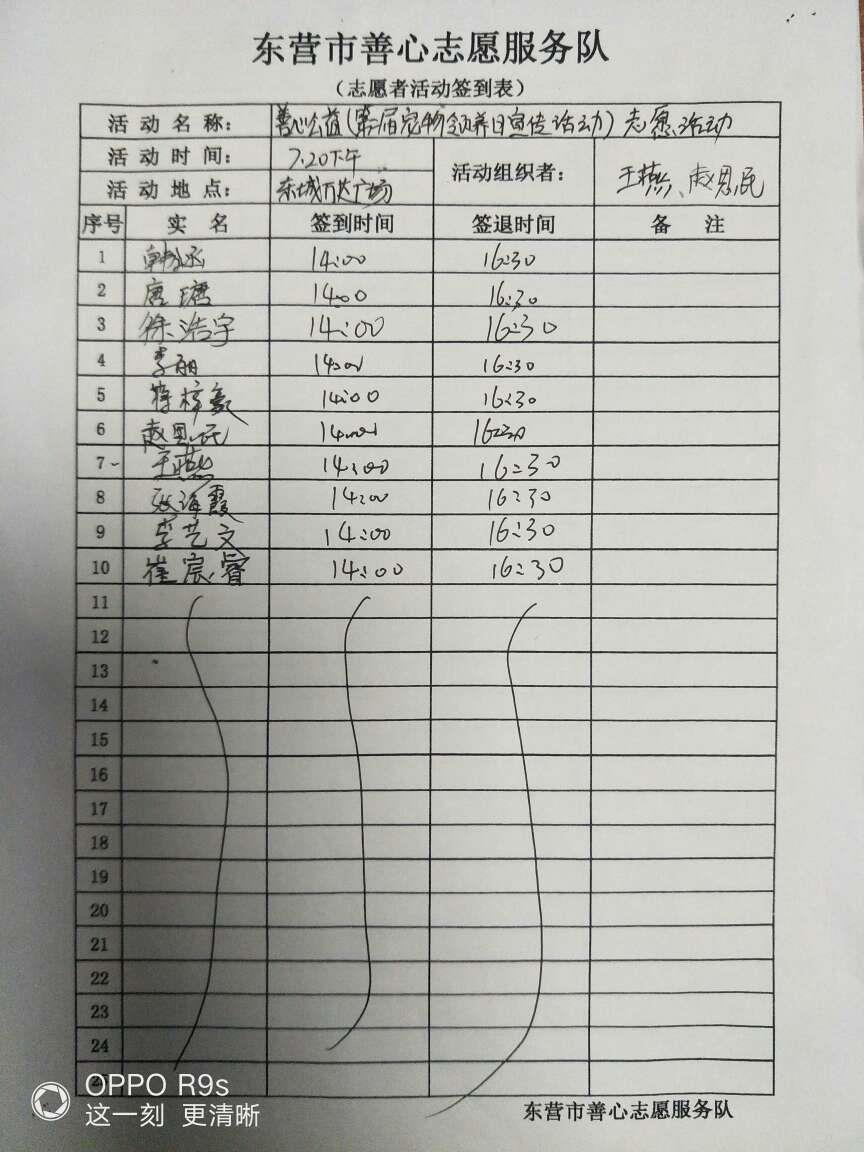 东营市善心志愿服务队
（志愿者活动签到表）
活动名称： 善心公益(第二届宠物领养日宣传活动)志愿活动
活动时间： 7.20下午 活动组织者： 王燕、赵恩民
活动地点： 东城万达广场
序号 实名 签到时间 签退时间 备注
1 14:00 16:30
2 唐 14:00 16:30
3 徐浩宇 14:00 16:30
4 李丽 14:00 16:30
5 14:00 16:30
6 赵恩民 14:00 16:30
7 王燕 14:00 16:30
8 张海霞 14:00 16:30
9 李艺文 14:00 16:30
10 崔宸睿 14:00 16:30
11
12
13
14
15
16
17
18
19
20
21
22
23
24
25
OPPO R9s
这一刻 更清晰
东营市善心志愿服务队